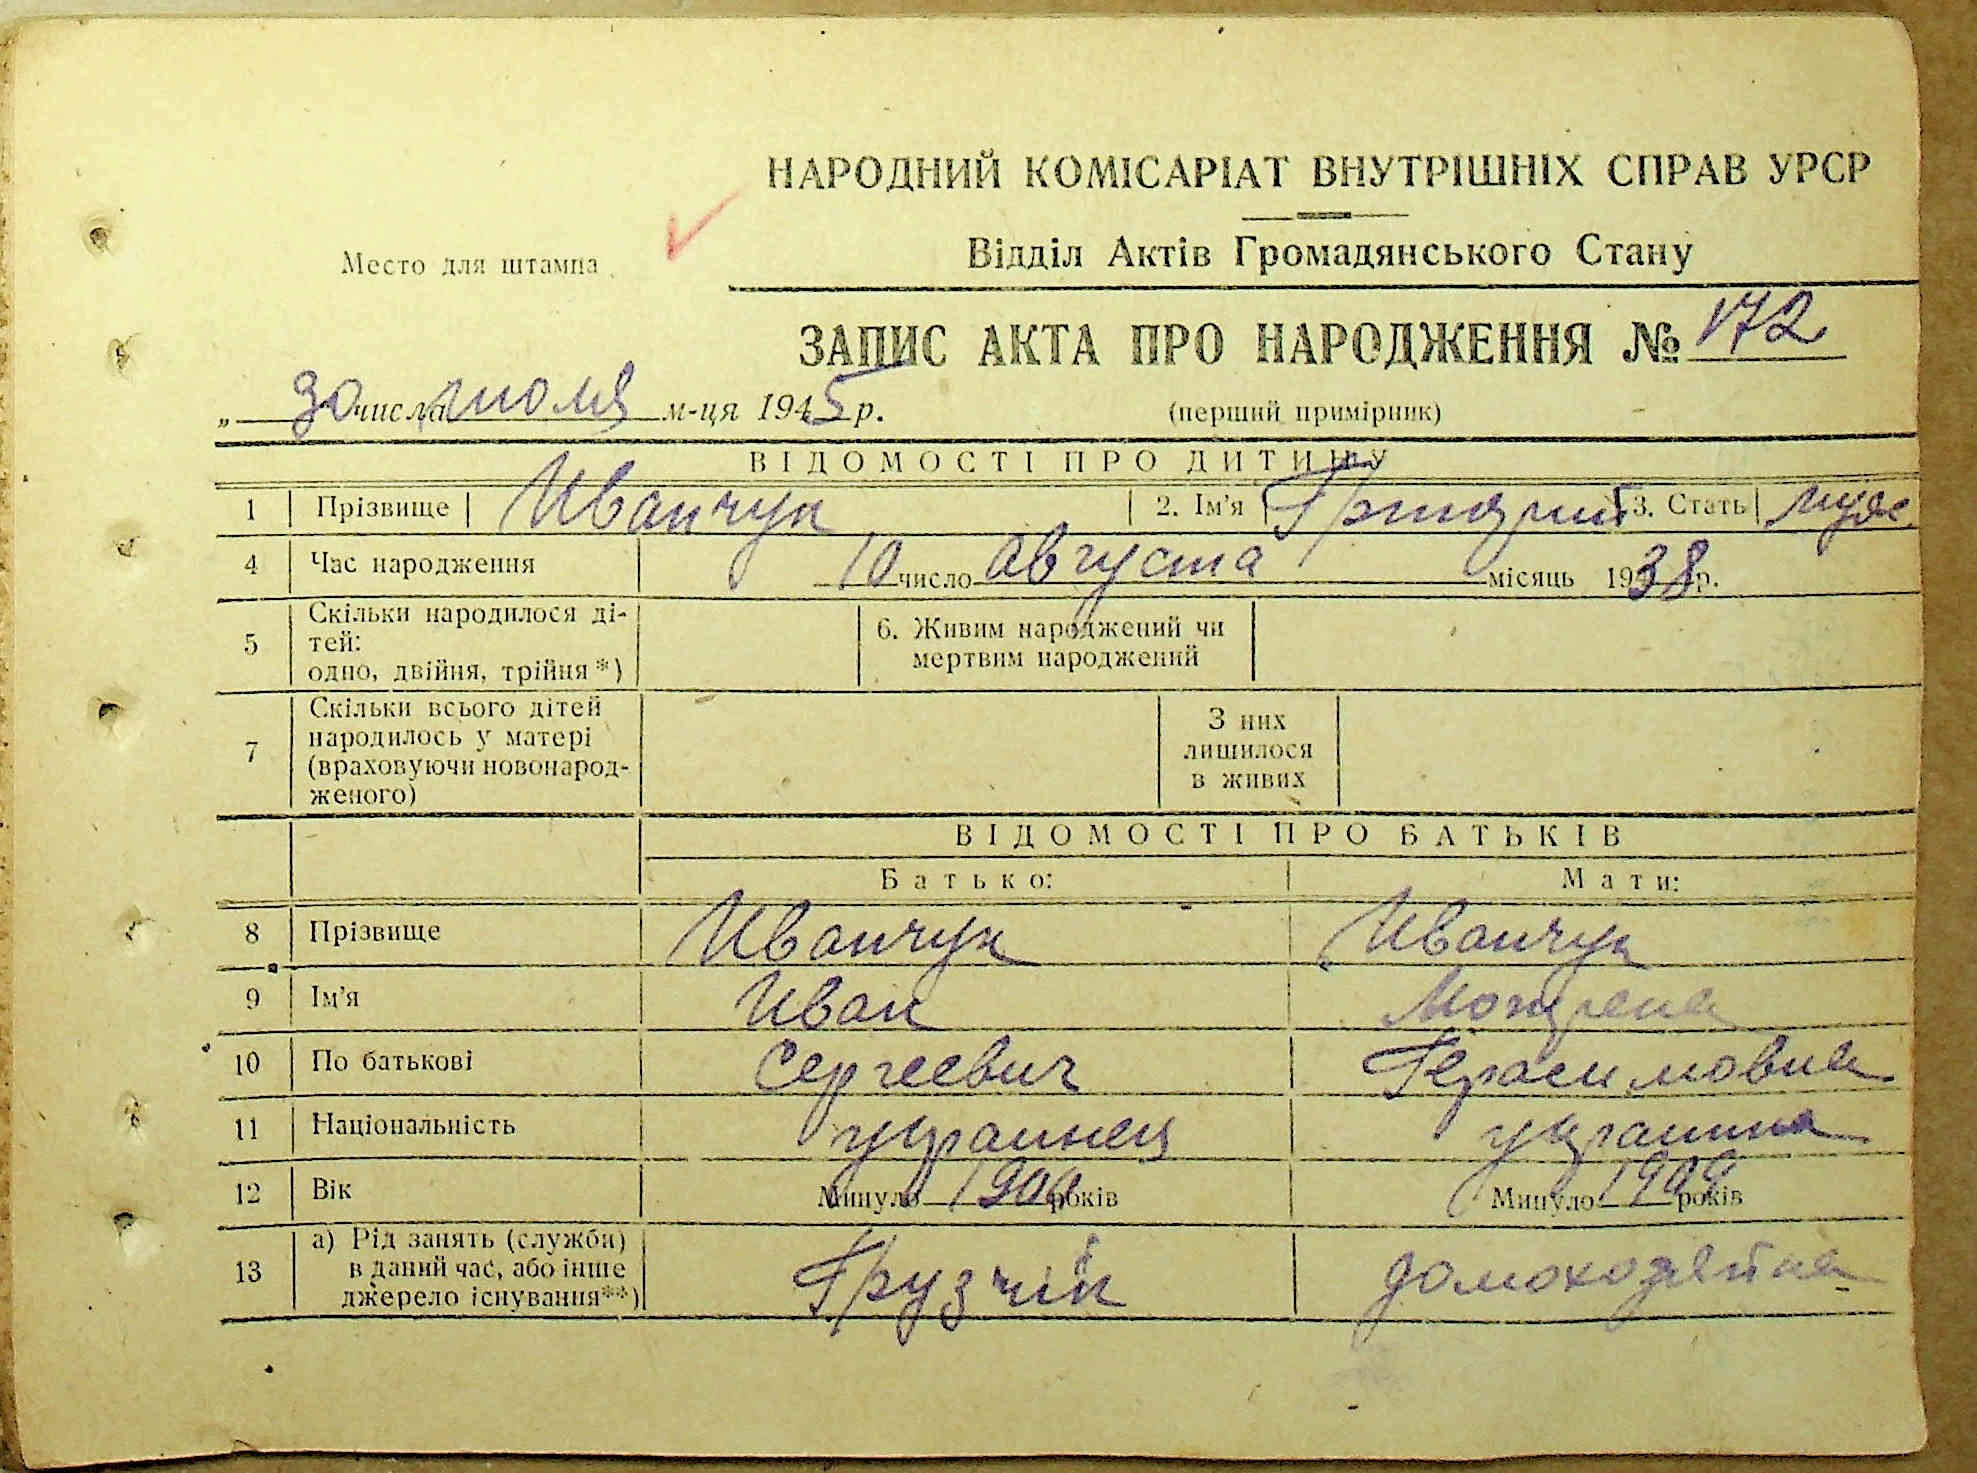 НАРОДНИЙ КОМІСАРІАТ ВНУТРІШНІХ СПРАВ УРСР
Место для штампа
Відділ Актів Громадянського Стану
ЗАПИС АКТА ПРО НАРОДЖЕННЯ № 172
„ 30 числа июля м-ця 1945 р.
(перший примірник)
ВІДОМОСТІ ПРО ДИТИНУ
1 Прізвище Иванчук 2. Ім'я Григорий 3. Стать муж
4 Час народження 10 число августа місяць 1938 р.
5 Скільки народилося ді-
тей:
одно, двійня, трійня *)
6. Живим народжений чи
мертвим народжений
7 Скільки всього дітей
народилось у матері
(враховуючи новонарод-
женого)
З них
лишилося
в живих
ВІДОМОСТІ ПРО БАТЬКІВ
Батько: Мати:
8 Прізвище Иванчук Иванчук
9 Ім'я Иван Мотрена
10 По батькові Сергеевич Герасимовна
11 Національність украинец украинка
12 Вік Минуло років Минуло 1909 років
13 а) Рід занять (служби)
в даний час, або інше
джерело існування**)
Грузчик домохозяйка